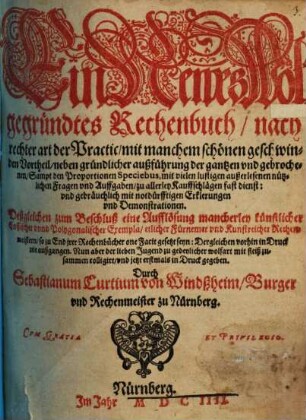 Ein Neues Wol
gegründtes Rechenbuch / nach
rechter art der Practic / mit manchem schönen geschwin-
den Vortheil / neben gründlicher außführung der gantzen vnd gebroche-
nen / Sampt den Proportionen Speciebus, mit vielen lustigen außerlesenen nütz-
lichen Fragen vnd Auffgaben / zu allerley Kauffschlägen fast dienst:
vnd gebräuchlich mit notdürfftigen Erklerungen
vnd Demonstrationen.
Deßgleichen zum Beschluß eine Aufflösung mancherley künstlicher
vnd Polygonalischer Exempla / etlicher Fürnemer vnd Kunstreicher Rechen-
meister / so zu End jrer Rechenbücher one Facit gesetzt seyn: Dergleichen vorhin in Druck
nie außgangen. Nun aber der lieben Jugend zu gedeylicher wolfart mit fleiß zu-
sammen colligirt / vnd jetzt erstmals in Druck gegeben.
Durch
Sebastianum Curtium von Windßheim / Burger
vnd Rechenmeister zu Nürnberg.
CVM GRATIA ET PRIVILEGIO.
Nürnberg.
Im Jahr M DC IIII.